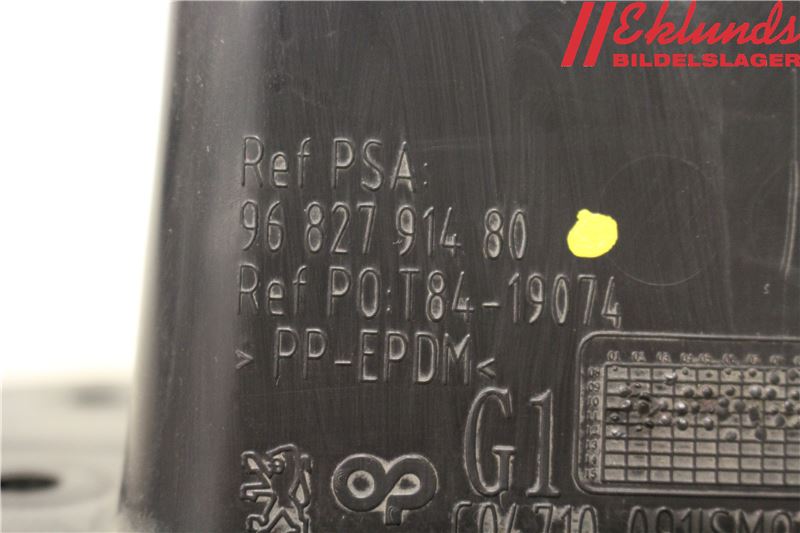 Eklunds
BILDELSLAGER
Ref PSA:
96 827 914 80
Ref PO:T84-19074
> PP-EPDM <
G1